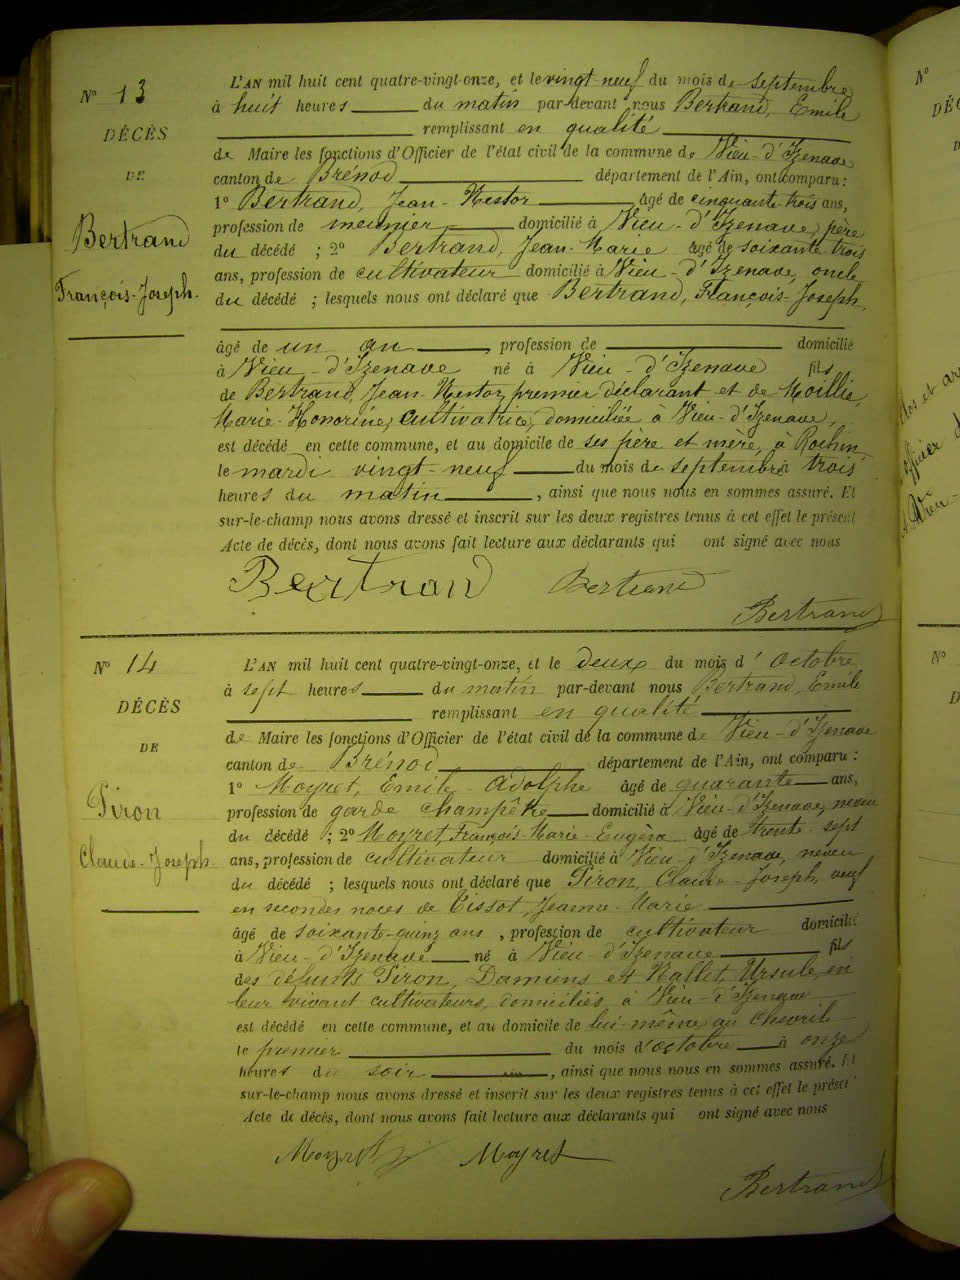 N° 13
DÉCÈS
DE
Bertrand
François-Joseph.
L'AN mil huit cent quatre-vingt-onze, et le vingt neuf du mois de septembre
à huit heures du matin par-devant nous Bertrand, Emile
remplissant en qualité
de Maire les fonctions d'Officier de l'état civil de la commune de Vieu-d'Izenave
canton de Brénod département de l'Ain, ont comparu :
1° Bertrand, Jean-Nestor âgé de cinquante trois ans,
profession de meunier domicilié à Vieu-d'Izenave, père
du décédé ; 2° Bertrand, Jean-Marie âgé de soixante-trois
ans, profession de cultivateur domicilié à Vieu-d'Izenave, oncle
du décédé ; lesquels nous ont déclaré que Bertrand, François-Joseph,
âgé de un an, profession de domicilié
à Vieu-d'Izenave né à Vieu-d'Izenave fils
de Bertrand, Jean-Nestor, premier déclarant et de Moillie,
Marie-Honorine, cultivatrice, domiciliée à Vieu-d'Izenave,
est décédé en cette commune, et au domicile de ses père et mère, à
le mardi vingt-neuf du mois de septembre à trois
heures du matin, ainsi que nous nous en sommes assuré. Et
sur-le-champ nous avons dressé et inscrit sur les deux registres tenus à cet effet le présent
Acte de décès, dont nous avons fait lecture aux déclarants qui ont signé avec nous
Bertrand Bertrand
Bertrand
N° 14
DÉCÈS
DE
Piron
Claude-Joseph.
L'AN mil huit cent quatre-vingt-onze, et le deux du mois d'Octobre
à sept heures du matin par-devant nous Bertrand, Emile
remplissant en qualité
de Maire les fonctions d'Officier de l'état civil de la commune de Vieu-d'Izenave
canton de Brénod département de l'Ain, ont comparu :
1° Moyret, Emile-Adolphe âgé de quarante ans,
profession de garde champêtre domicilié à Vieu-d'Izenave, neveu
du décédé ; 2° Moyret, François-Marie-Eugène âgé de trente-sept
ans, profession de cultivateur domicilié à Vieu-d'Izenave, neveu
du décédé ; lesquels nous ont déclaré que Piron, Claude-Joseph, veuf
en secondes noces de Tissot, Jeanne-Marie
âgé de soixante-quinz ans, profession de cultivateur domicilié
à Vieu-d'Izenave né à Vieu-d'Izenave fils
des défunts Piron, Damiens et Nallet, Ursule, en
leur vivant cultivateurs, domiciliés à Vieu-d'Izenave
est décédé en cette commune, et au domicile de lui-même, au Chevril
le premier du mois d'octobre à onze
heures du soir, ainsi que nous nous en sommes assuré. Et
sur-le-champ nous avons dressé et inscrit sur les deux registres tenus à cet effet le présent
Acte de décès, dont nous avons fait lecture aux déclarants qui ont signé avec nous
Moyret Moyret
Bertrand